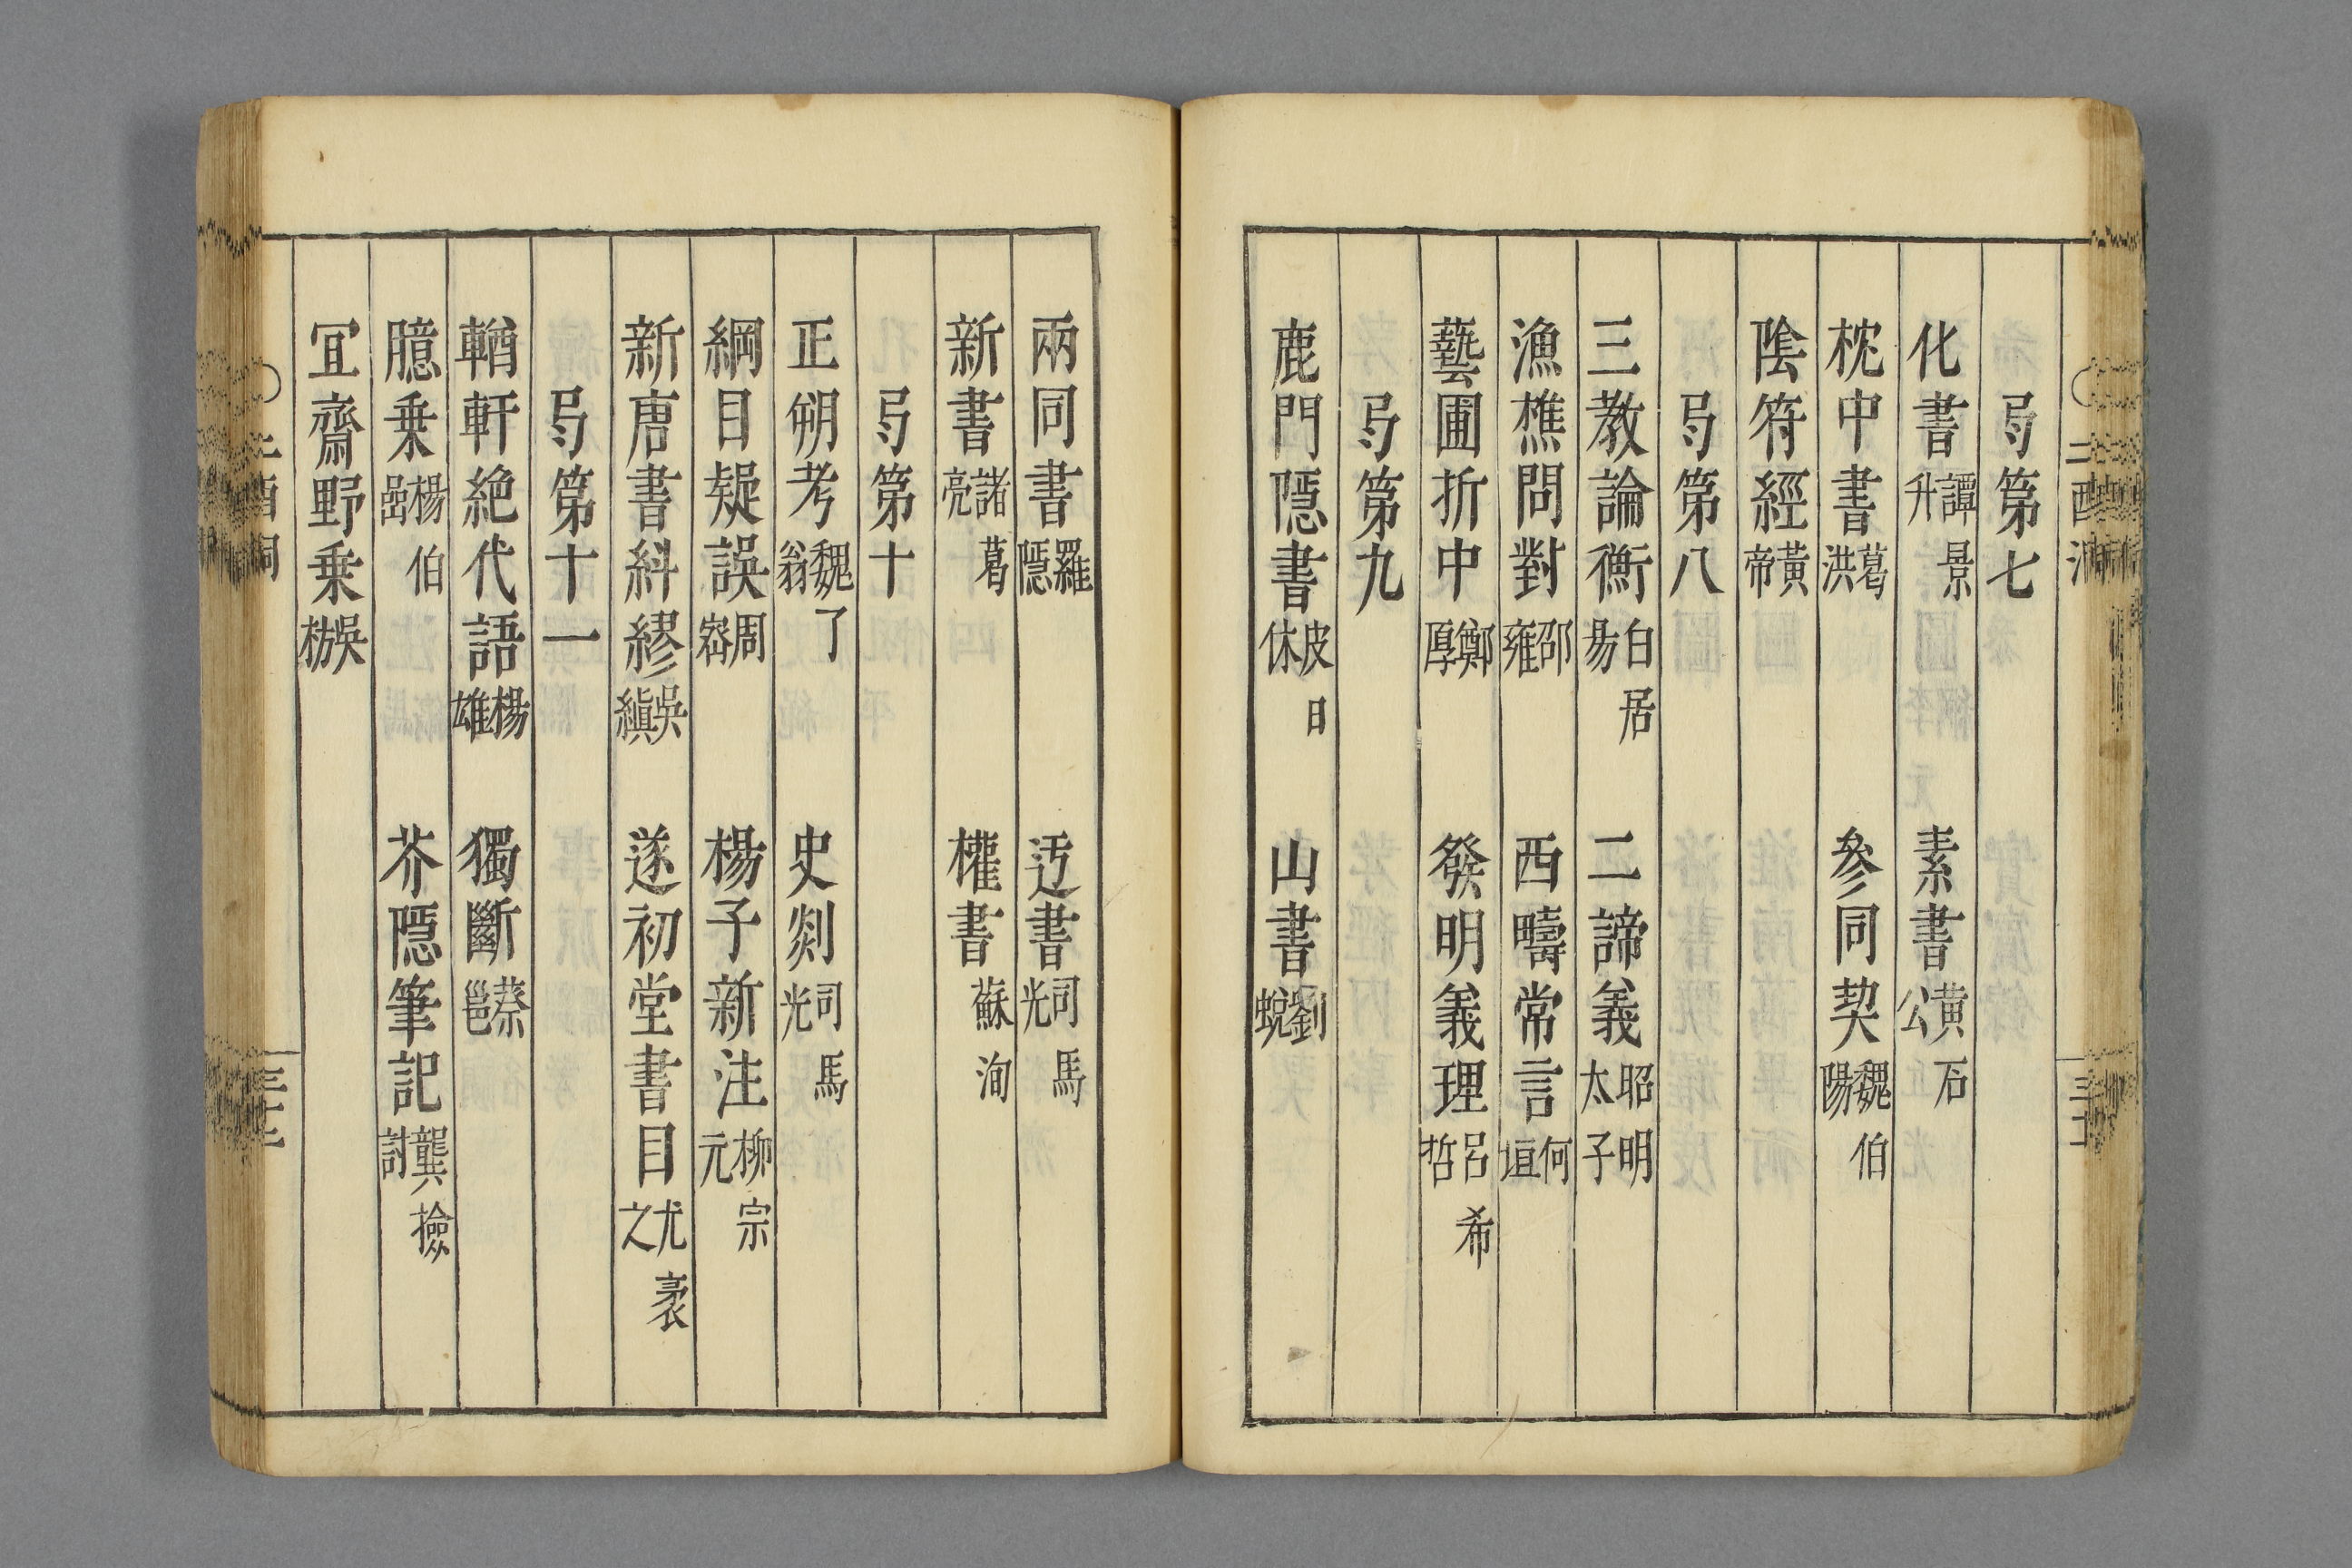 弓第七
化書譚景升 素書黃石公
枕中書葛洪 參同契魏伯陽
陰符經黃帝
弓第八
三教論衡白居易 二諦義昭明太子
漁樵問對邵雍 西疇常言何垣
藝圃折中鄭厚 發明義理呂希哲
弓第九
鹿門隱書皮日休 山書劉蛻
兩同書羅隱 迃書司馬光
新書諸葛亮 權書蘇洵
弓第十
正朔考魏了翁 史剡司馬光
綱目疑誤周密 楊子新注柳宗元
新唐書糾繆吳縝 遂初堂書目尤袤之
弓第十一
輶軒絕代語楊雄 獨斷蔡邕
臆乗楊伯嵒 芥隱筆記龔𢵧討
冝齋野乗吳枋